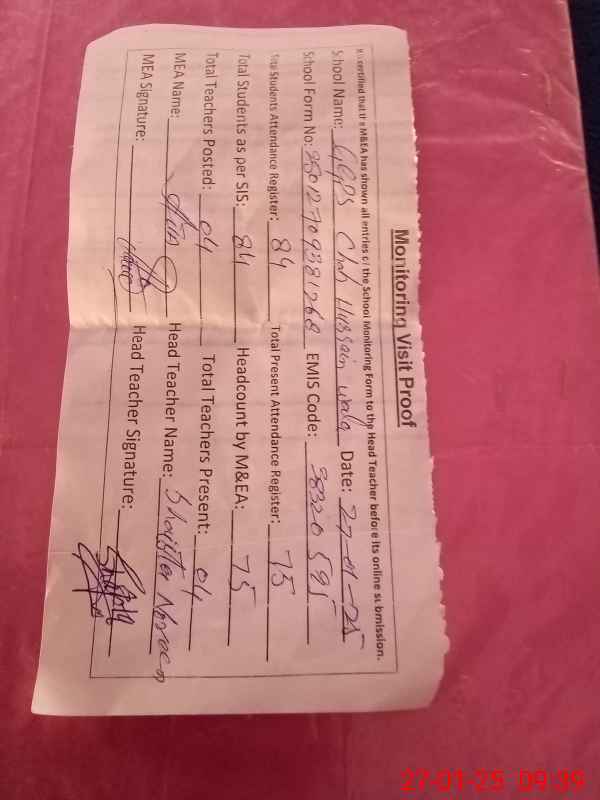 Monitoring Visit Proof
It is certified that the M&EA has shown all entries of the School Monitoring Form to the Head Teacher before its online submission.
School Name: GGPS Chah Hussain wala Date: 27-01-25
School Form No: EMIS Code: 38320595
Total Students Attendance Register: 84 Total Present Attendance Register: 75
Total Students as per SIS: 84 Headcount by M&EA: 75
Total Teachers Posted: 04 Total Teachers Present: 04
MEA Name: Head Teacher Name: Shaista Noreen
MEA Signature: Head Teacher Signature:
27-01-25 09:39